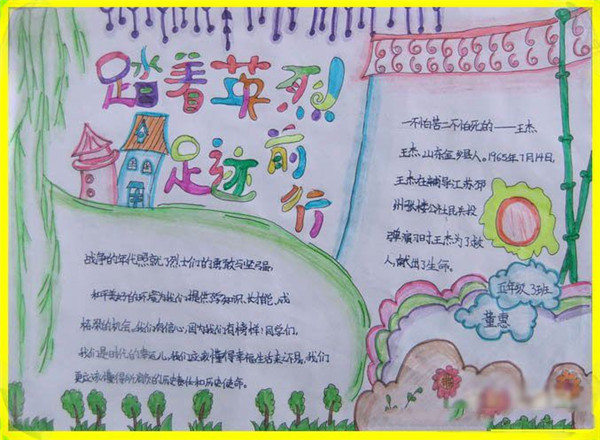 踏着英烈
足迹前行
战争的年代照就了烈士们的勇敢与坚强,
和平美好的环境为我们提供了学知识、长才能、成
栋梁的机会。我们有信心,因为我们有榜样!同学们,
我们是时代的幸运儿,我们应该懂得幸福生活来之不易,我们
更应该懂得所肩负的历史责任和历史使命。
一不怕苦二不怕死的——王杰
王杰,山东金乡县人。1965年7月14日,
王杰在辅导江苏邳
州张楼公社民兵投
弹演习时,王杰为了救
人,献出了生命。
五年级、3班
董惠